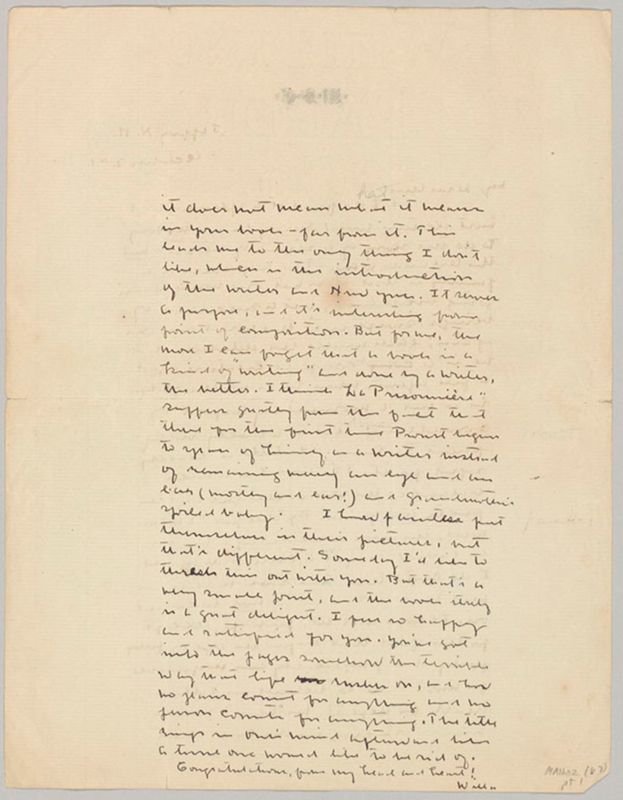 it does not mean what it means
in your book - far from it. This
leads me to the only thing I don't
like, which is the introduction
of the writer and New York. It serves
a purpose, and it's interesting from
point of composition. But for me, the
more I can forget that a book is a
kind of "writing" and done by a writer,
the better. I think "La Prisonnière"
suffers greatly from the fact that
there for the first time Proust begins
to speak of himself as a writer instead
of remaining merely an eye and an
ear (mostly an ear!) and grandmother's
spoiled baby. I know painters put
themselves in their pictures, but
that's different. Some day I'd like to
thresh this out with you. But that's a
very small point, and the book itself
is a great delight. I feel so happy
and satisfied for you. You've got
into the pages somehow the terrible
way that life rushes on, and how
no count for anything and no
person counts for anything. The title
rings in one's mind afterward like
a tune one would like to be rid of.
Congratulations, from my head and heart!
Willa
MA1602 (87)